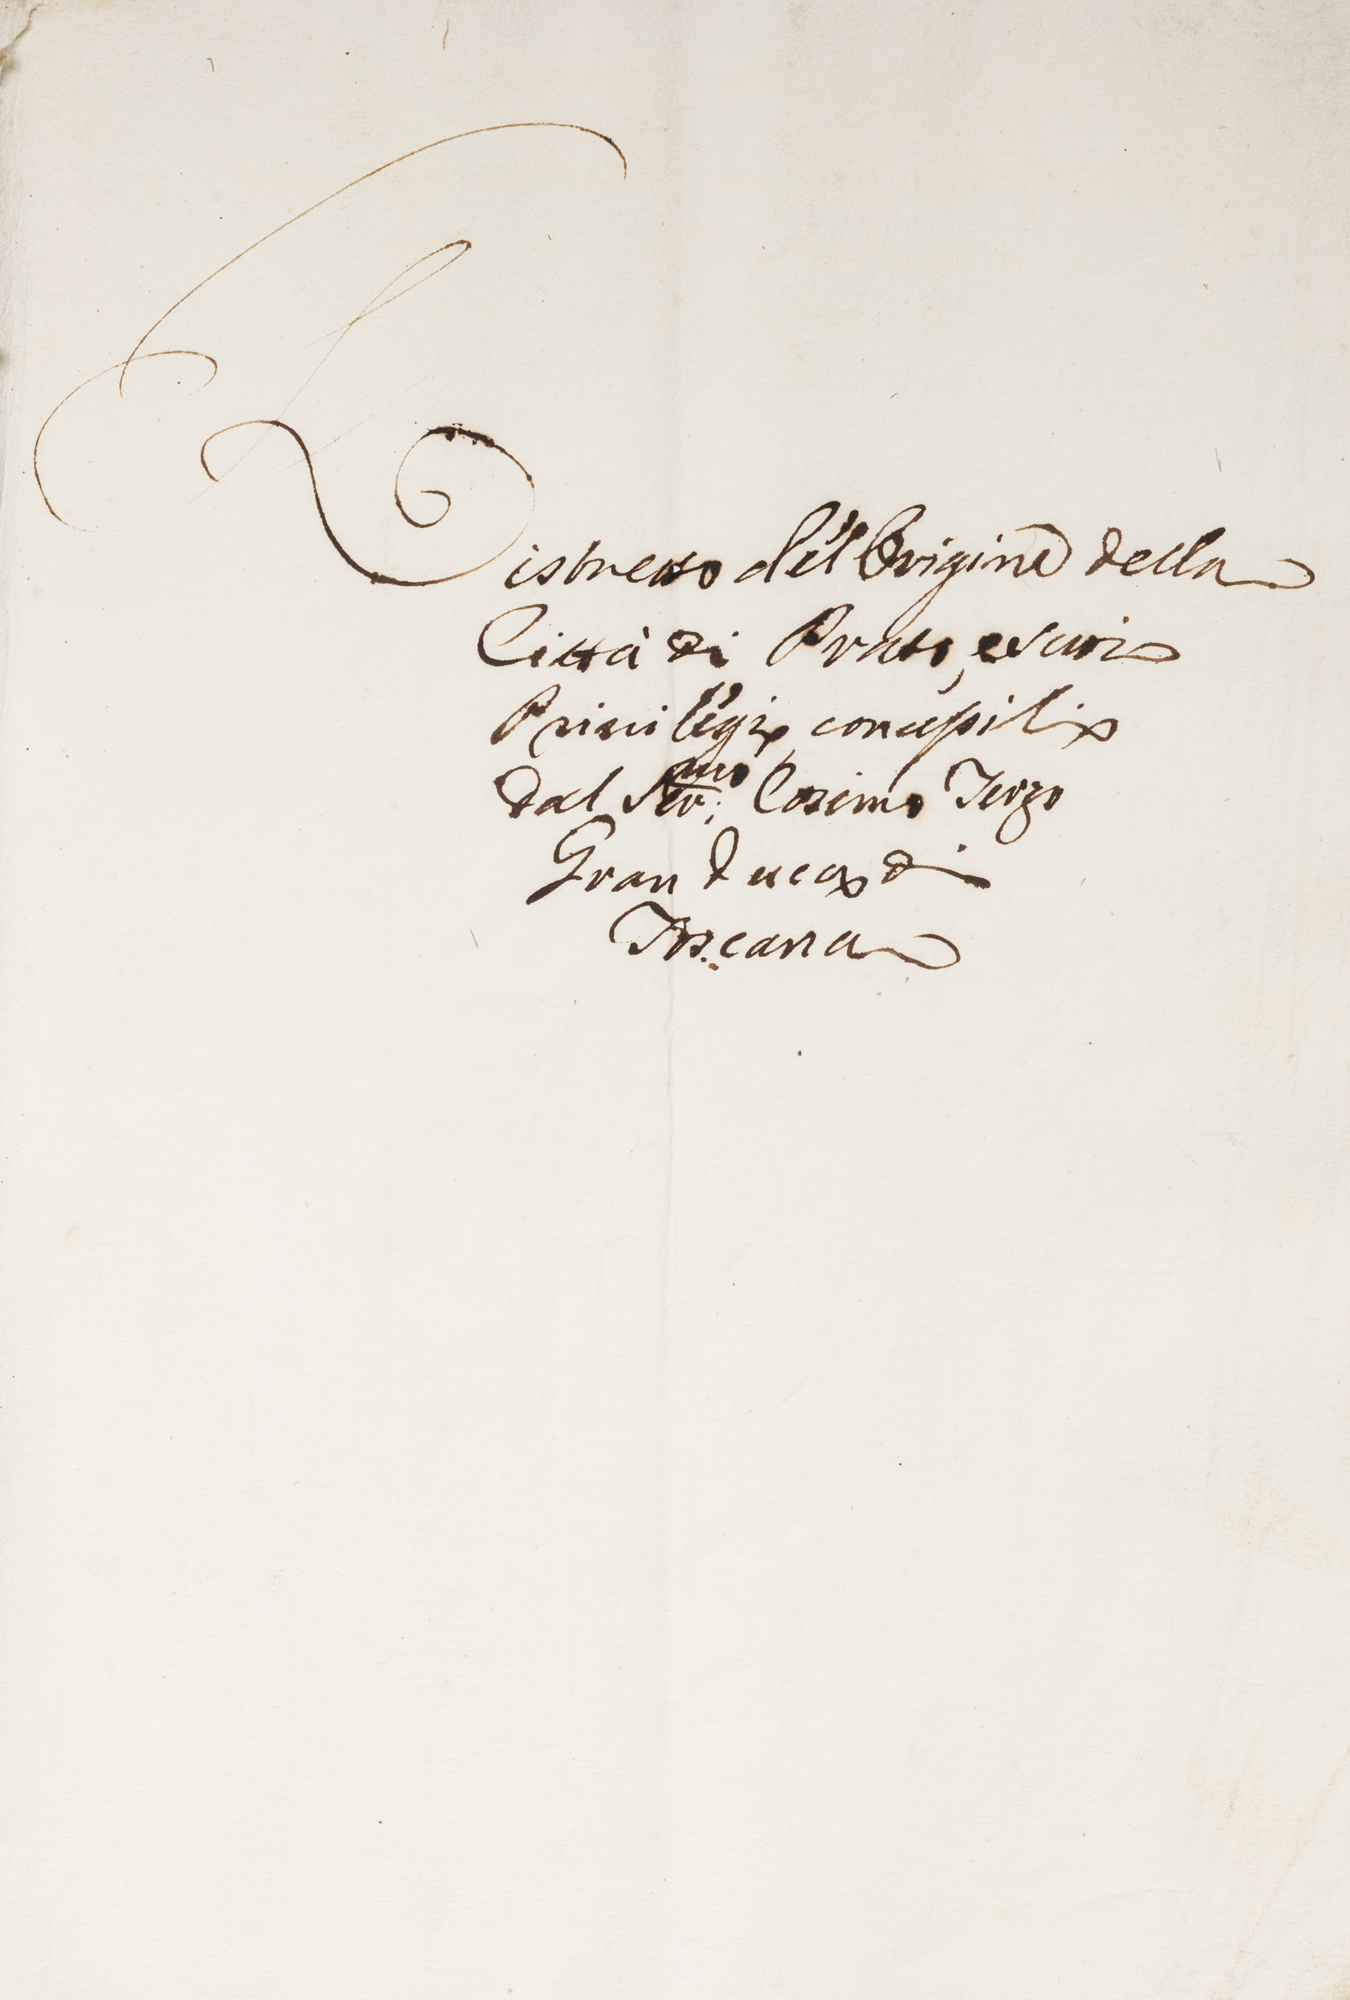 Distretto dell'Origine della
Città di Prato, e suoi
Privilegi concepiti
dal Ser.mo Cosimo Terzo
Gran Duca di
Toscana